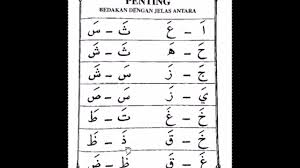 PENTING
BEDAKAN DENGAN JELAS ANTARA
اَ – عَ ثَ – سَ
حَ – هَ ثَ – شَ
جَ – زَ سَ – شَ
زَ سَ – صَ
خَ – غَ تَ – طَ
خَ – قَ ذَ – ظَ
غَ – قَ ظَ – ضَ